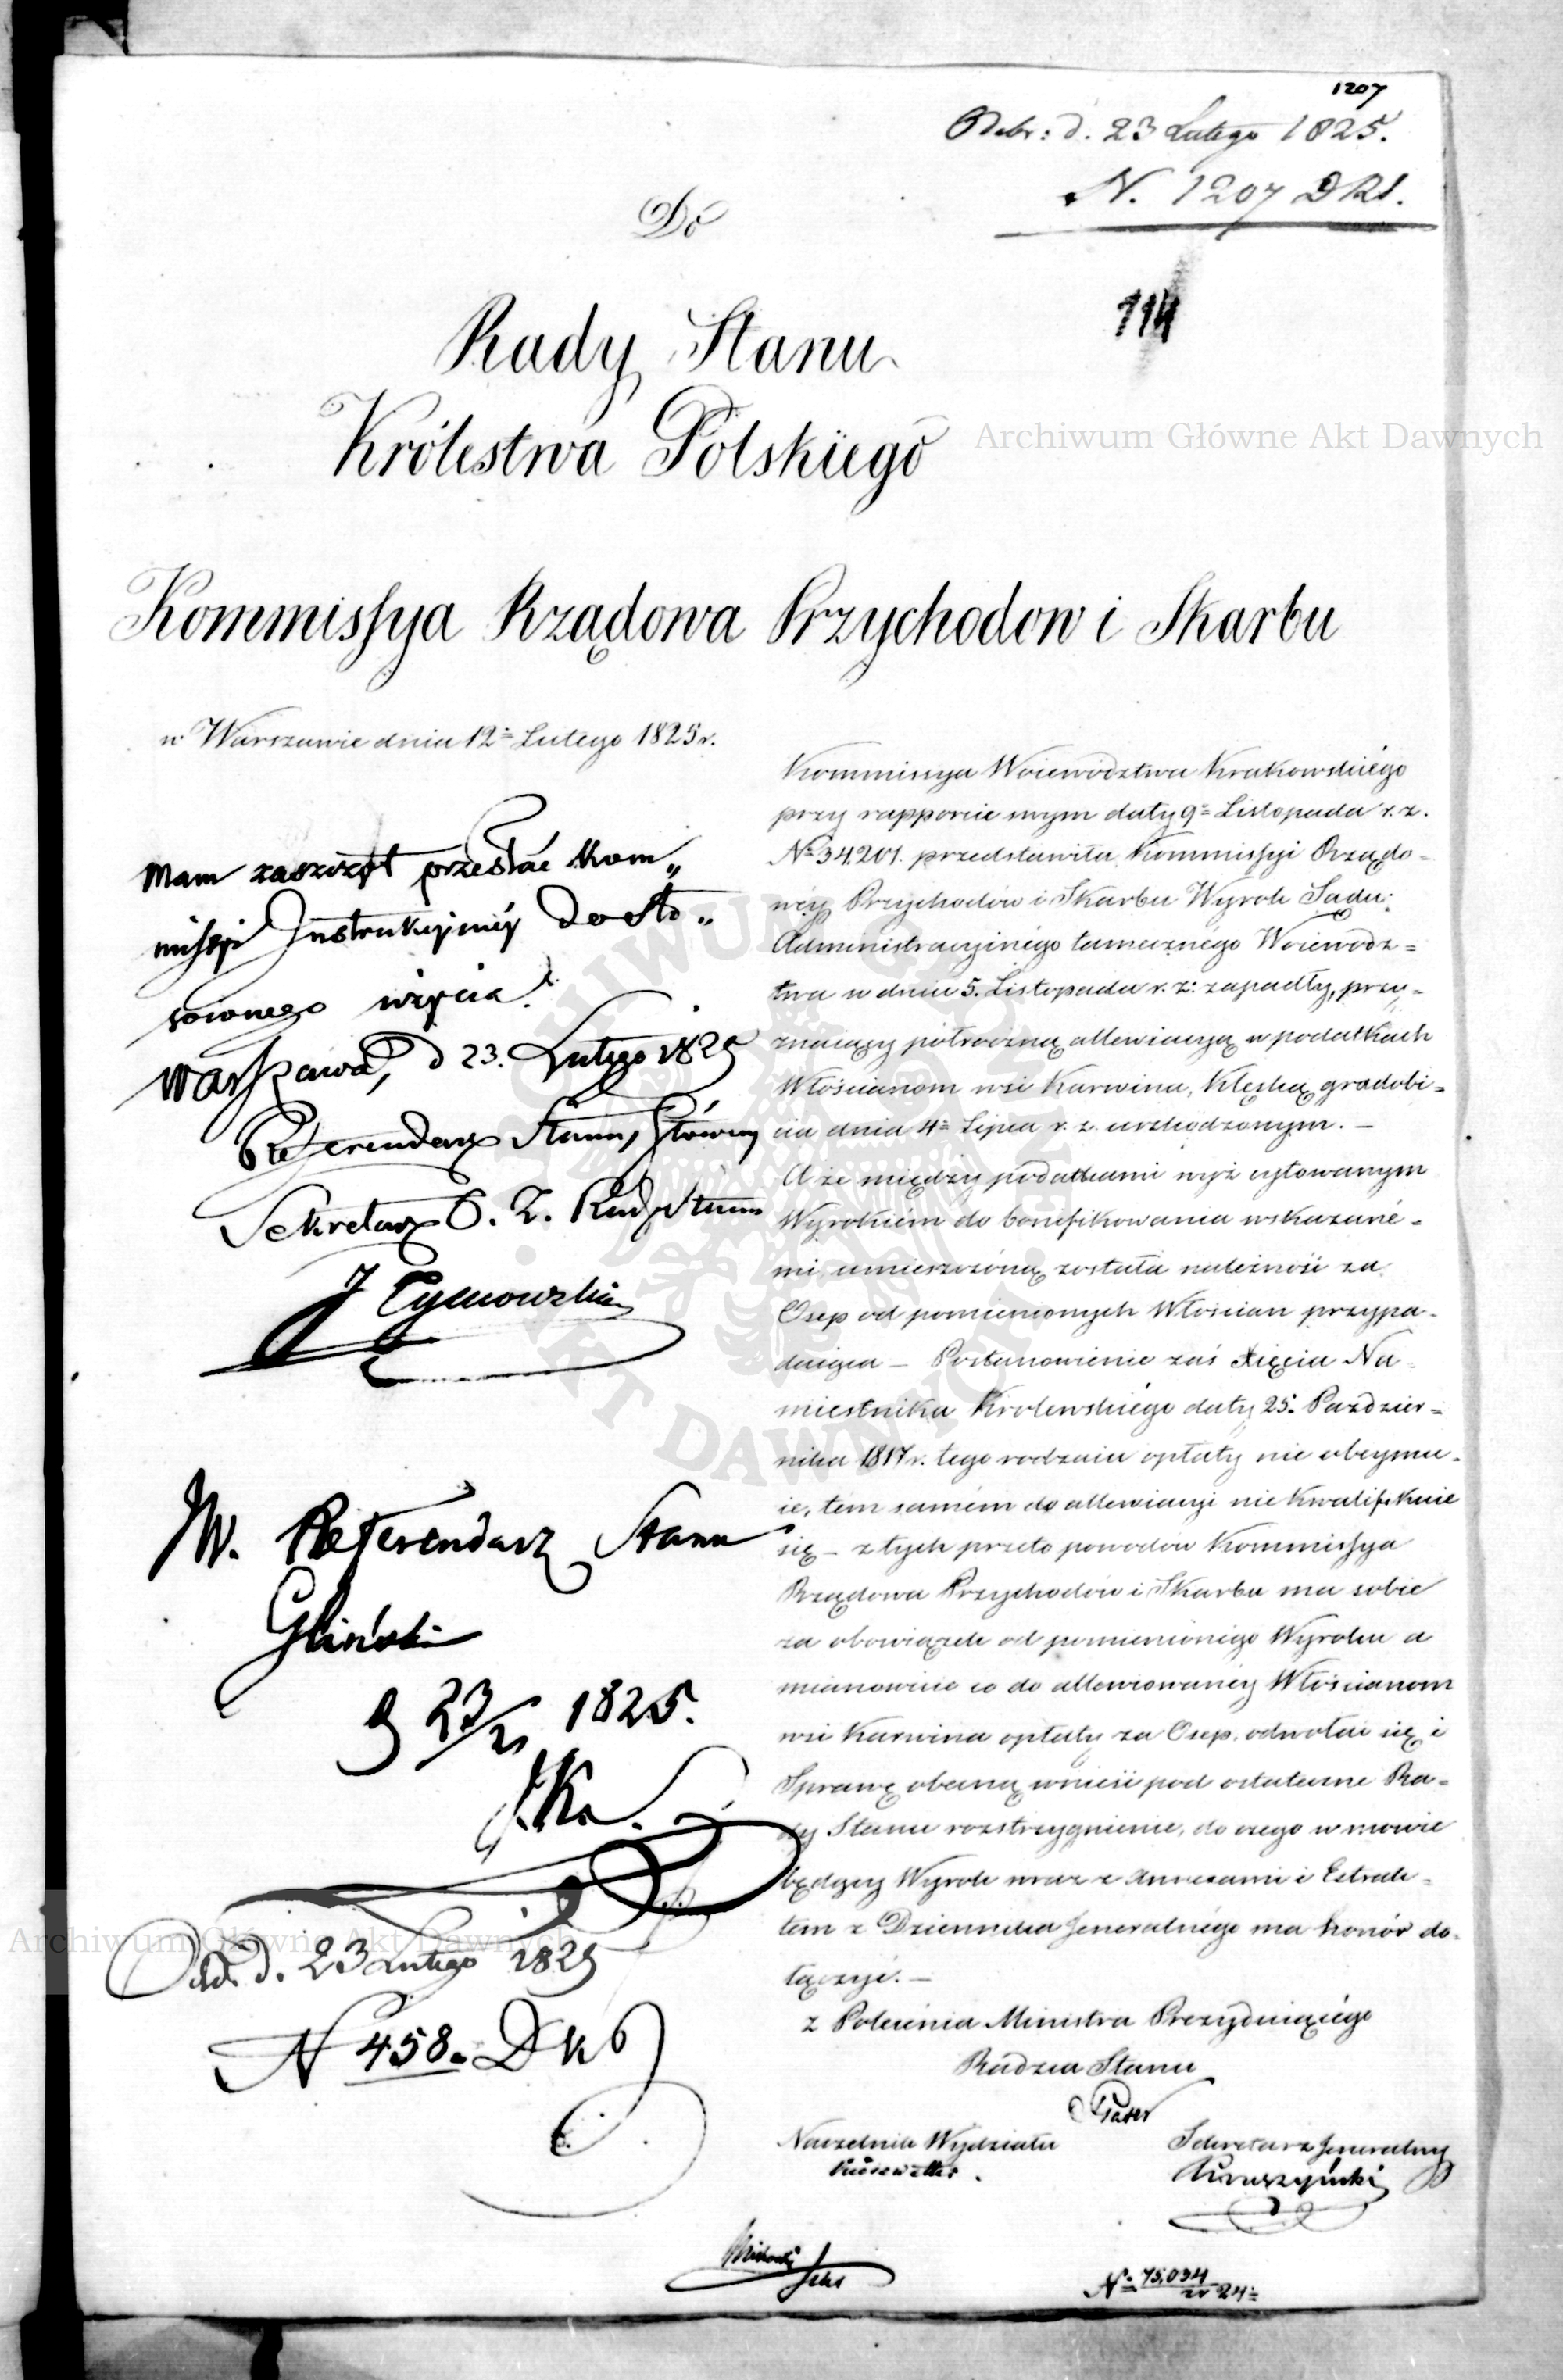 1207
Odebr: d. 23 Lutego 1825.
N. 1207 DRS.
Do
114
Rady Stanu
Królestwa Polskiego
Archiwum Główne Akt Dawnych
Kommissya Rządowa Przychodow i Skarbu
w Warszawie dnia 12= Lutego 1825 r.
Mam zaszczyt przesłać Kom„
missyi Instrukcyjnéy do sto„
sownego wzięcia.
Warszawa, d 23. Lutego 1825
Referendarz Stanu, Główny
Sekretarz O. Z. Rady Stanu
J Tymowski
JW. Referendarz Stanu
Gliński
D 23/2 1825.
Odd. d. 23 Lutego 1825
N 458. DKS
Kommissya Woiewództwa Krakowskiégo
przy rapporcie swym daty 9= Listopada r. z.
No 34201. przedstawiła Kommissyi Rządo=
wéy Przychodów i Skarbu Wyrok Sądu
Administracyinégo tamecznégo Woiewódz=
twa w dniu 5. Listopada r. z: zapadły, przy=
znaiący półroczną allewiacyą w podatkach
Włościanom wsi Karwina, Klęską gradobi=
cia dnia 4= Lipca r. z. uszkodzonym. —
A że między podatkami wyż cytowanym
Wyrokiém do bonifikowania wskazané=
mi, umieszczóną została należność za
Osep od pomienionych Włościan przypa=
daiąca — Postanowienie zaś Xięcia Na=
miestnika Krolewskiégo daty 25. Paździer=
nika 1817 r. tego rodzaiu opłaty nie obeymu=
ie, tem samém do allewiacyi nie kwalifikuie
się — z tych przeto powodów Kommissya
Rządowa Przychodów i Skarbu ma sobie
za obowiązek od pomienionégo Wyroku a
mianowicie co do allewiowanéy Włościanom
wsi Karwina opłaty za Osep, odwołać się i
Sprawę obecną wnieść pod ostateczne Ra=
dy Stanu rozstrzygnienie, do czego w mowie
będący Wyrok wraz z Annexami i Extrak=
tem z Dziennika Jeneralnego ma honor do=
łączyć. —
z Polecénia Ministra Prezyduiącégo
Radzca Stanu
Naczelnik Wydziału
Kiesewetter.
Sekretarz Jeneralny
Kruszyński
No 75,034
w 24=
Archiwum Główne Akt Dawnych
ARCHIWUM GŁÓWNE AKT DAWNYCH